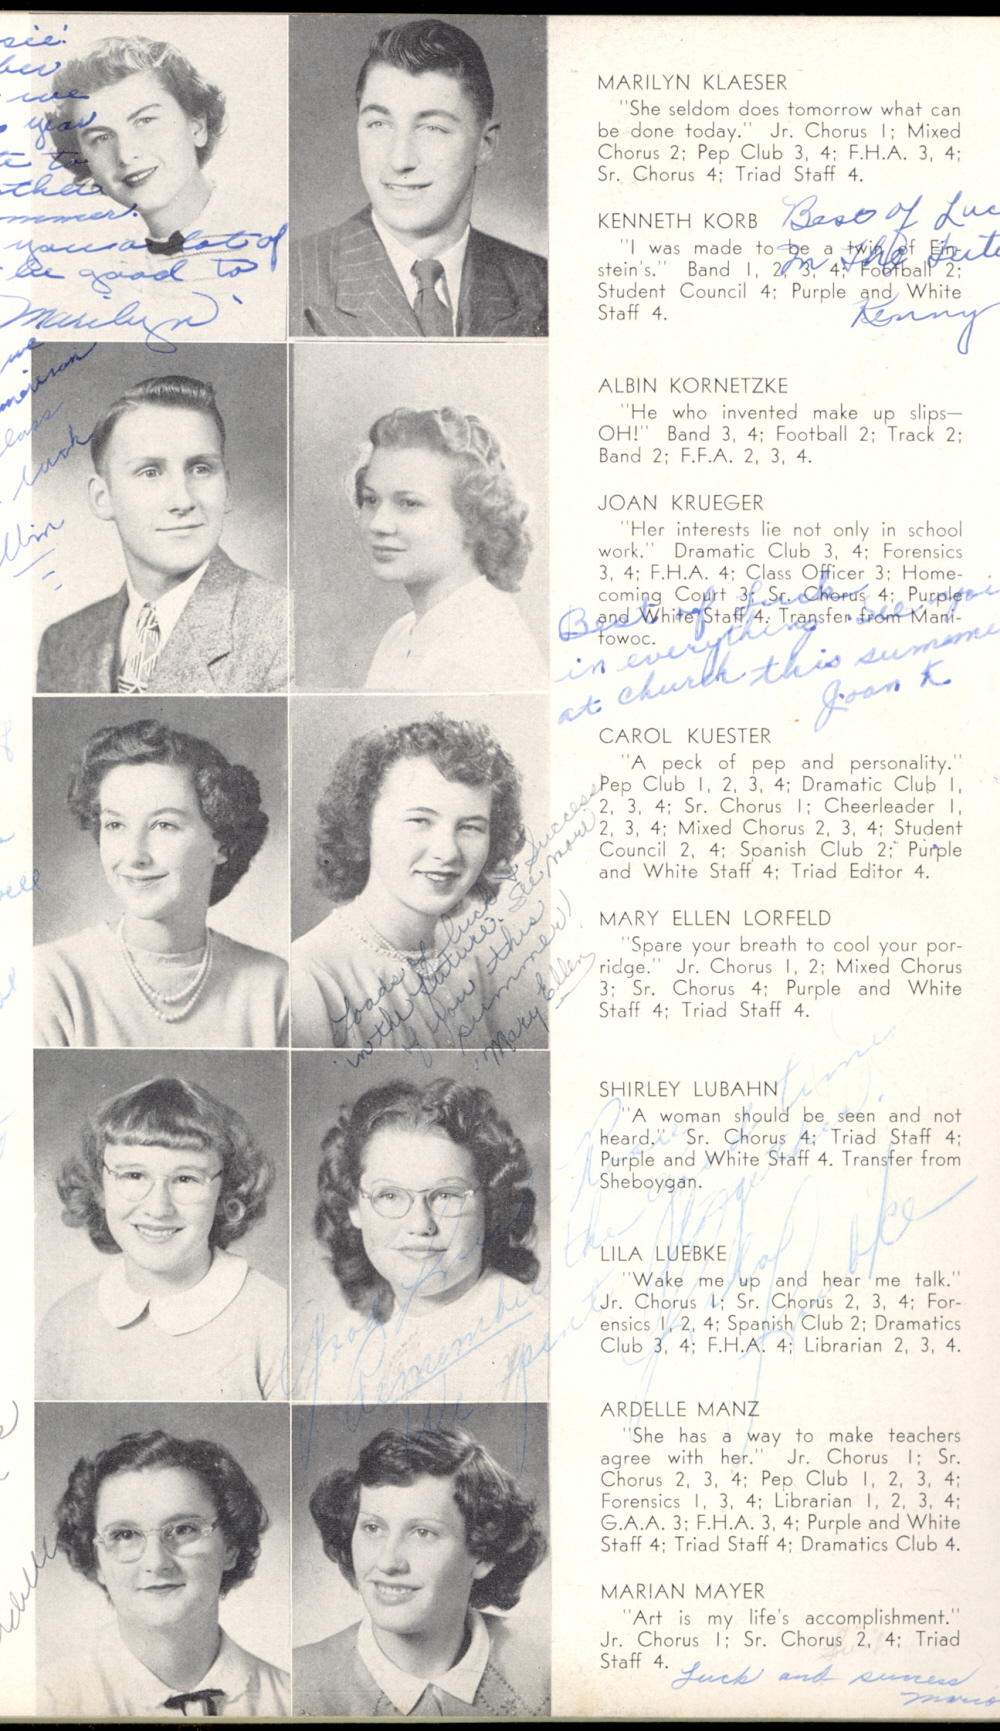 sie!
we
year
to
mmer.
you a lot of
be good to
Marilyn
class
luck
MARILYN KLAESER
"She seldom does tomorrow what can
be done today." Jr. Chorus 1; Mixed
Chorus 2; Pep Club 3, 4; F.H.A. 3, 4;
Sr. Chorus 4; Triad Staff 4.
KENNETH KORB
Best of Luc
In the
Kenny
"I was made to be a twin of Ein-
stein's." Band 1, 2, 3, 4; Football 2;
Student Council 4; Purple and White
Staff 4.
ALBIN KORNETZKE
"He who invented make up slips—
OH!" Band 3, 4; Football 2; Track 2;
Band 2; F.F.A. 2, 3, 4.
JOAN KRUEGER
"Her interests lie not only in school
work." Dramatic Club 3, 4; Forensics
3, 4; F.H.A. 4; Class Officer 3; Home-
coming Court 3; Sr. Chorus 4; Purple
and White Staff 4. Transfer from Mani-
towoc.
Best of Luck
in everything. See you
at church this summe
Joan K
CAROL KUESTER
"A peck of pep and personality."
Pep Club 1, 2, 3, 4; Dramatic Club 1,
2, 3, 4; Sr. Chorus 1; Cheerleader 1,
2, 3, 4; Mixed Chorus 2, 3, 4; Student
Council 2, 4; Spanish Club 2; Purple
and White Staff 4; Triad Editor 4.
Loads of luck & Success
in the future. See more
of you this
summer!
Mary Ellen
MARY ELLEN LORFELD
"Spare your breath to cool your por-
ridge." Jr. Chorus 1, 2; Mixed Chorus
3; Sr. Chorus 4; Purple and White
Staff 4; Triad Staff 4.
SHIRLEY LUBAHN
"A woman should be seen and not
heard." Sr. Chorus 4; Triad Staff 4;
Purple and White Staff 4. Transfer from
Sheboygan.
LILA LUEBKE
"Wake me up and hear me talk."
Jr. Chorus 1; Sr. Chorus 2, 3, 4; For-
ensics 1, 2, 4; Spanish Club 2; Dramatics
Club 3, 4; F.H.A. 4; Librarian 2, 3, 4.
Remember the times
we spent
ARDELLE MANZ
"She has a way to make teachers
agree with her." Jr. Chorus 1; Sr.
Chorus 2, 3, 4; Pep Club 1, 2, 3, 4;
Forensics 1, 3, 4; Librarian 1, 2, 3, 4;
G.A.A. 3; F.H.A. 3, 4; Purple and White
Staff 4; Triad Staff 4; Dramatics Club 4.
MARIAN MAYER
"Art is my life's accomplishment."
Jr. Chorus 1; Sr. Chorus 2, 4; Triad
Staff 4.
Luck and success